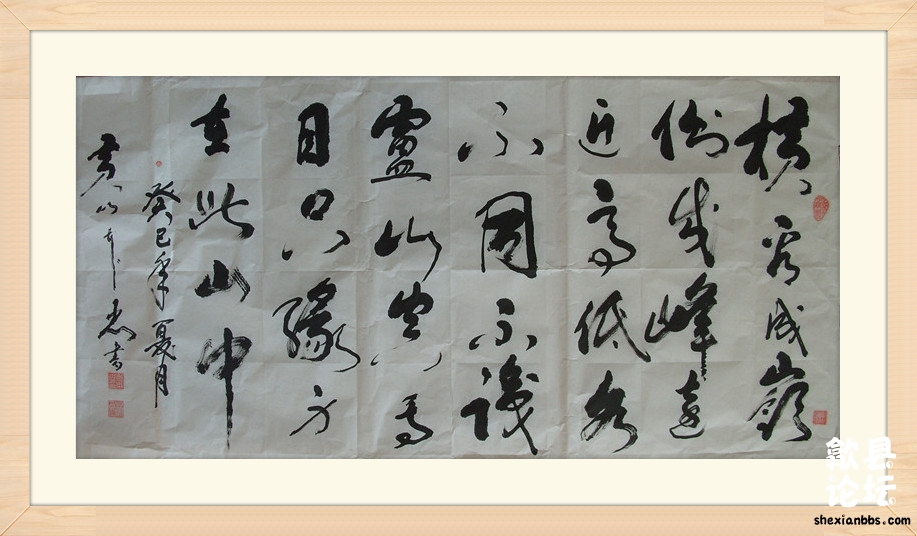 橫看成嶺
側成峰遠
近高低各
不同不識
盧山真面
目只緣身
在此山中
癸巳年夏月
黄山 書
歙县
论坛
shexianbbs.com